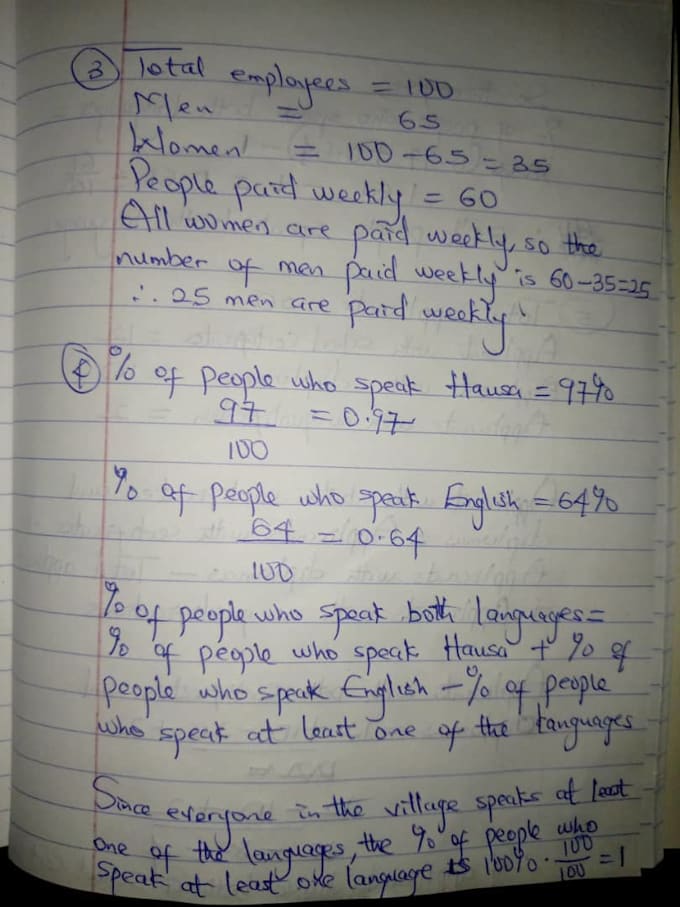 ③ Total employees = 100
Men = 65
Women = 100 - 65 = 35
People paid weekly = 60
All women are paid weekly, so the
number of men paid weekly is 60-35=25
∴ 25 men are paid weekly.
④ % of people who speak Hausa = 97%
97/100 = 0.97
% of people who speak English = 64%
64/100 = 0.64
% of people who speak both languages =
% of people who speak Hausa + % of
people who speak English - % of people
who speak at least one of the languages
Since everyone in the village speaks at least
one of the languages, the % of people who
speak at least one language is 100%. 100/100 = 1